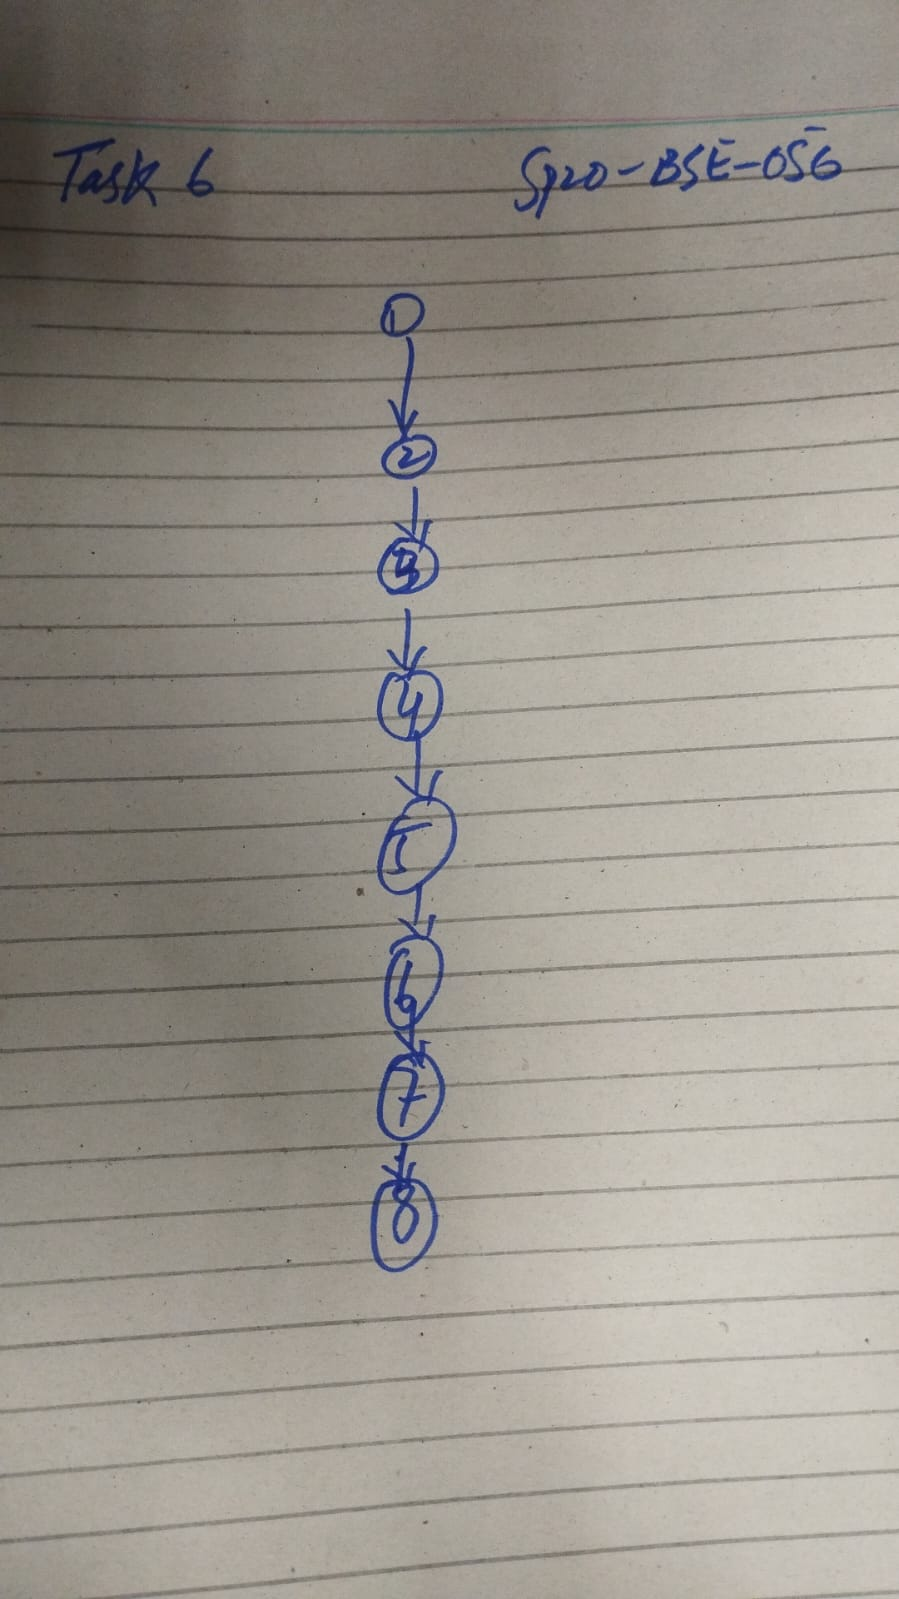 Task 6 Sp20-BSE-056
1
2
3
4
5
6
7
8